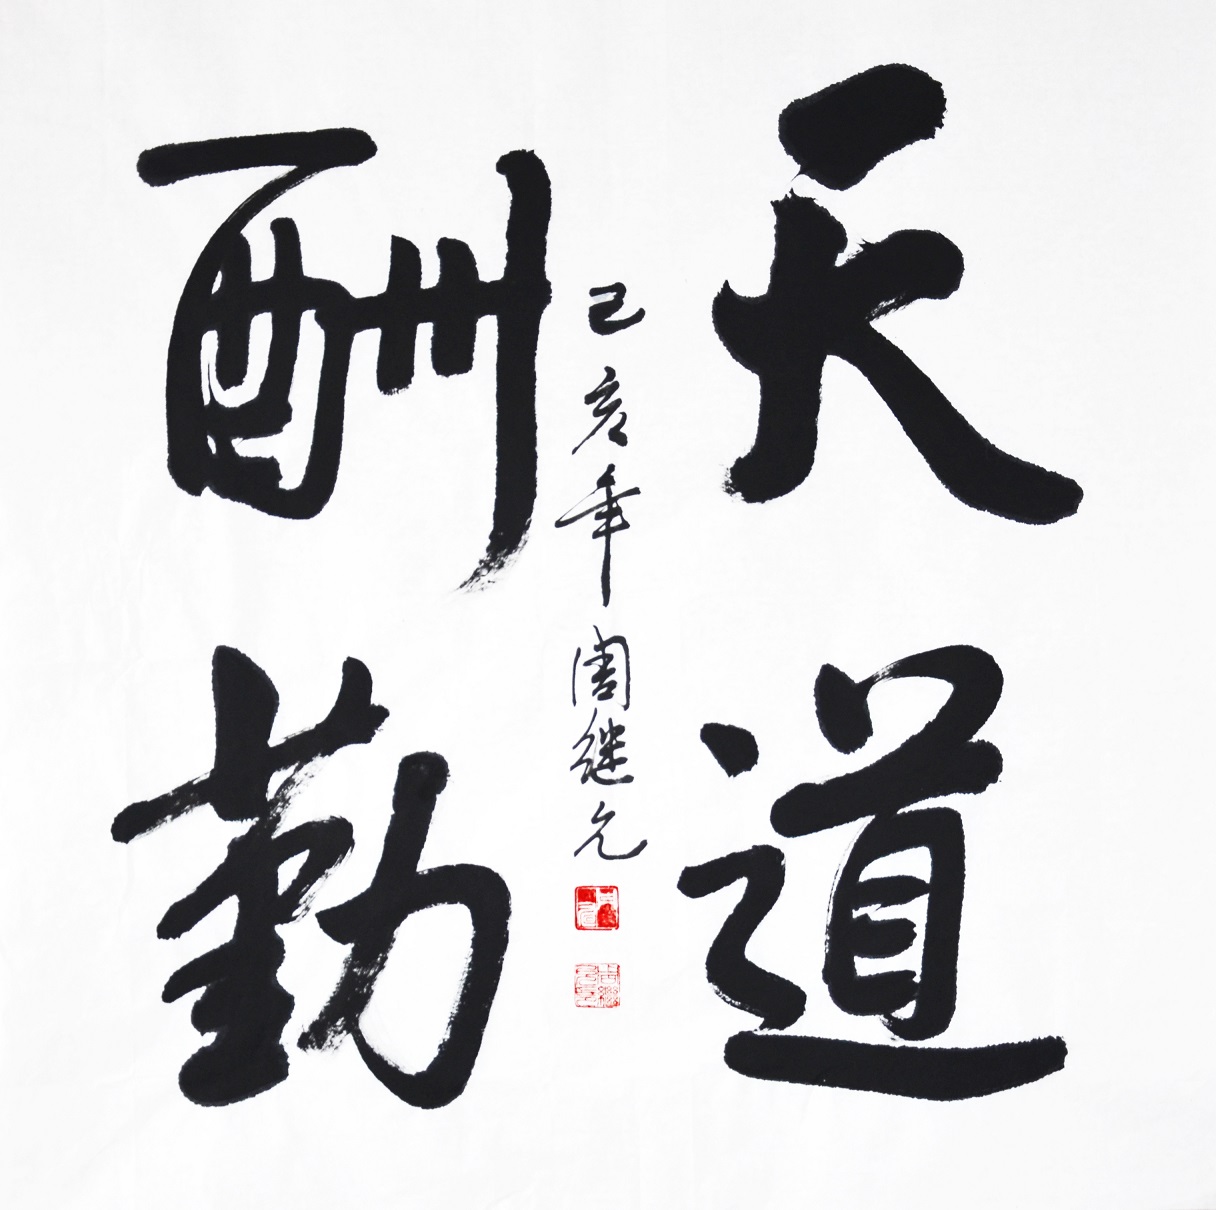 天道
酬勤
己亥年周继允